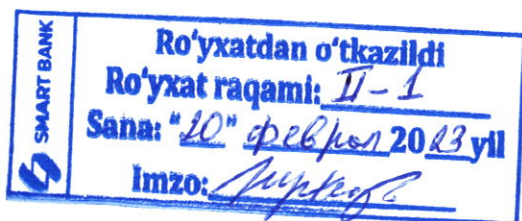 SMART BANK
Ro'yxatdan o'tkazildi
Ro'yxat raqami: II-1
Sana: "20" феврал 2023 yil
Imzo: